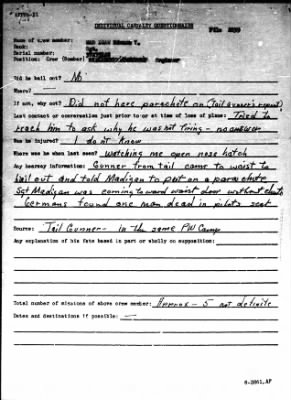 INDIVIDUAL CASUALTY QUESTIONNAIRE
Name of crew member:
Rank:
Serial number:
Position: Crew (Bomber) Engineer
Did he bail out? No
Where? —
If not, why not? Did not have parachute on (Tail gunner's report)
Last contact or conversation just prior to or at time of loss of plane: Tried to
reach him to ask why he was not firing - no answer
Was he injured? I don't know
Where was he when last seen? watching me open nose hatch
Any hearsay information: Gunner from tail came to waist to
bail out and told Madigan to put on a parachute
Sgt Madigan was coming toward waist door without chute
Germans found one man dead in pilots seat
Source: Tail Gunner - in the same PW Camp
Any explanation of his fate based in part or wholly on supposition:
Total number of missions of above crew member: Approx - 5 not definite
Dates and destinations if possible: —
6-3861,AF